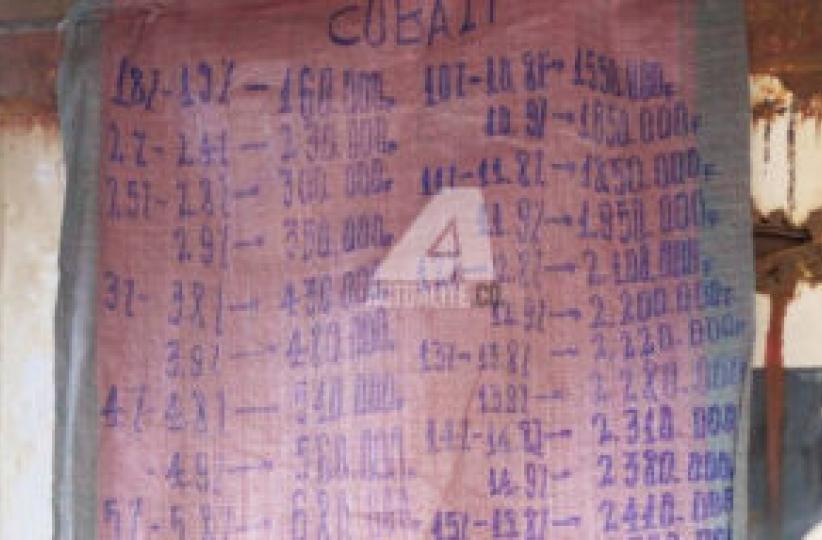 COBALT
1.8%-1.9% → 160.000F
2%-2.4% → 230.000F
2.5%-2.8% → 300.000F
2.9% → 350.000F
3%-3.8% → 430.000
3.9% → 480.000
4%-4.8% → 510.000F
-4.9% → 560.000
5%-5.8% → 680.000
10%-10.8% → 1550.000F
10.9% → 1650.000F
11%-11.8% → 1850.000F
11.9% → 1950.000F
2.8% → 2.100.000F
12.9% → 2.200.000F
13%-13.8% → 2.220.000F
13.9% → 2.280.000F
14%-14.8% → 2.310.000
14.9% → 2.380.000
15%-15.8% → 2.410.000
ACTUALITE.CD